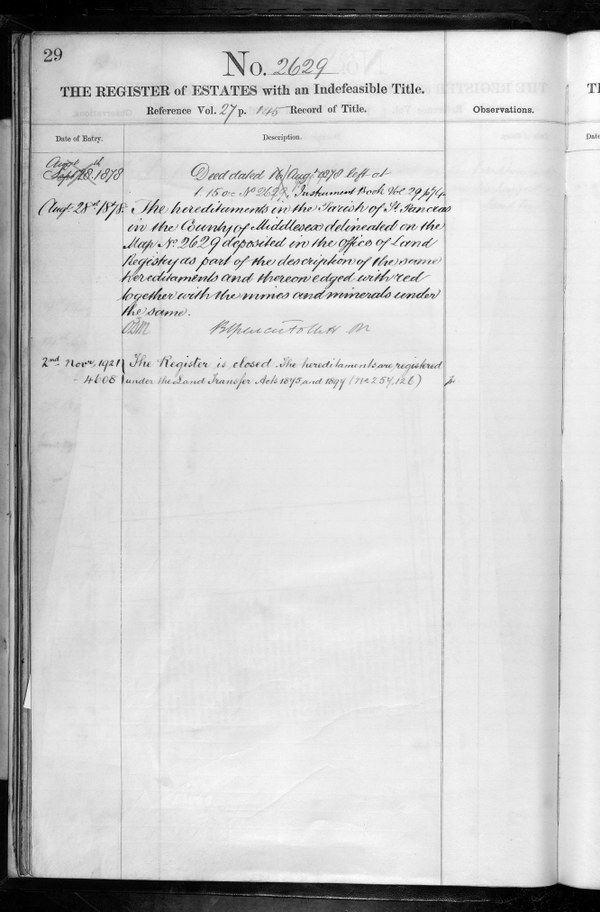 29
No. 2629
THE REGISTER of ESTATES with an Indefeasible Title.
Reference Vol. 27 p. 145 Record of Title.
Observations.
Date of Entry.
Description.
Augt
Sept 1878
Deed dated Augt 1878 left at
1.15 o.c. No 2629 Instrument Book Vol 29 p
Augt. 28th 1878.
The hereditaments in the Parish of St. Pancras
in the County of Middlesex delineated on the
Map No 2629 deposited in the office of Land
Registry as part of the description of the same
hereditaments and thereon edged with red
together with the mines and minerals under
the same.
2nd Novr, 1921
The Register is closed. The hereditaments are registered
4605
under the Land Transfer Acts 1875 and 1897 (No 254,126)
TH
Date